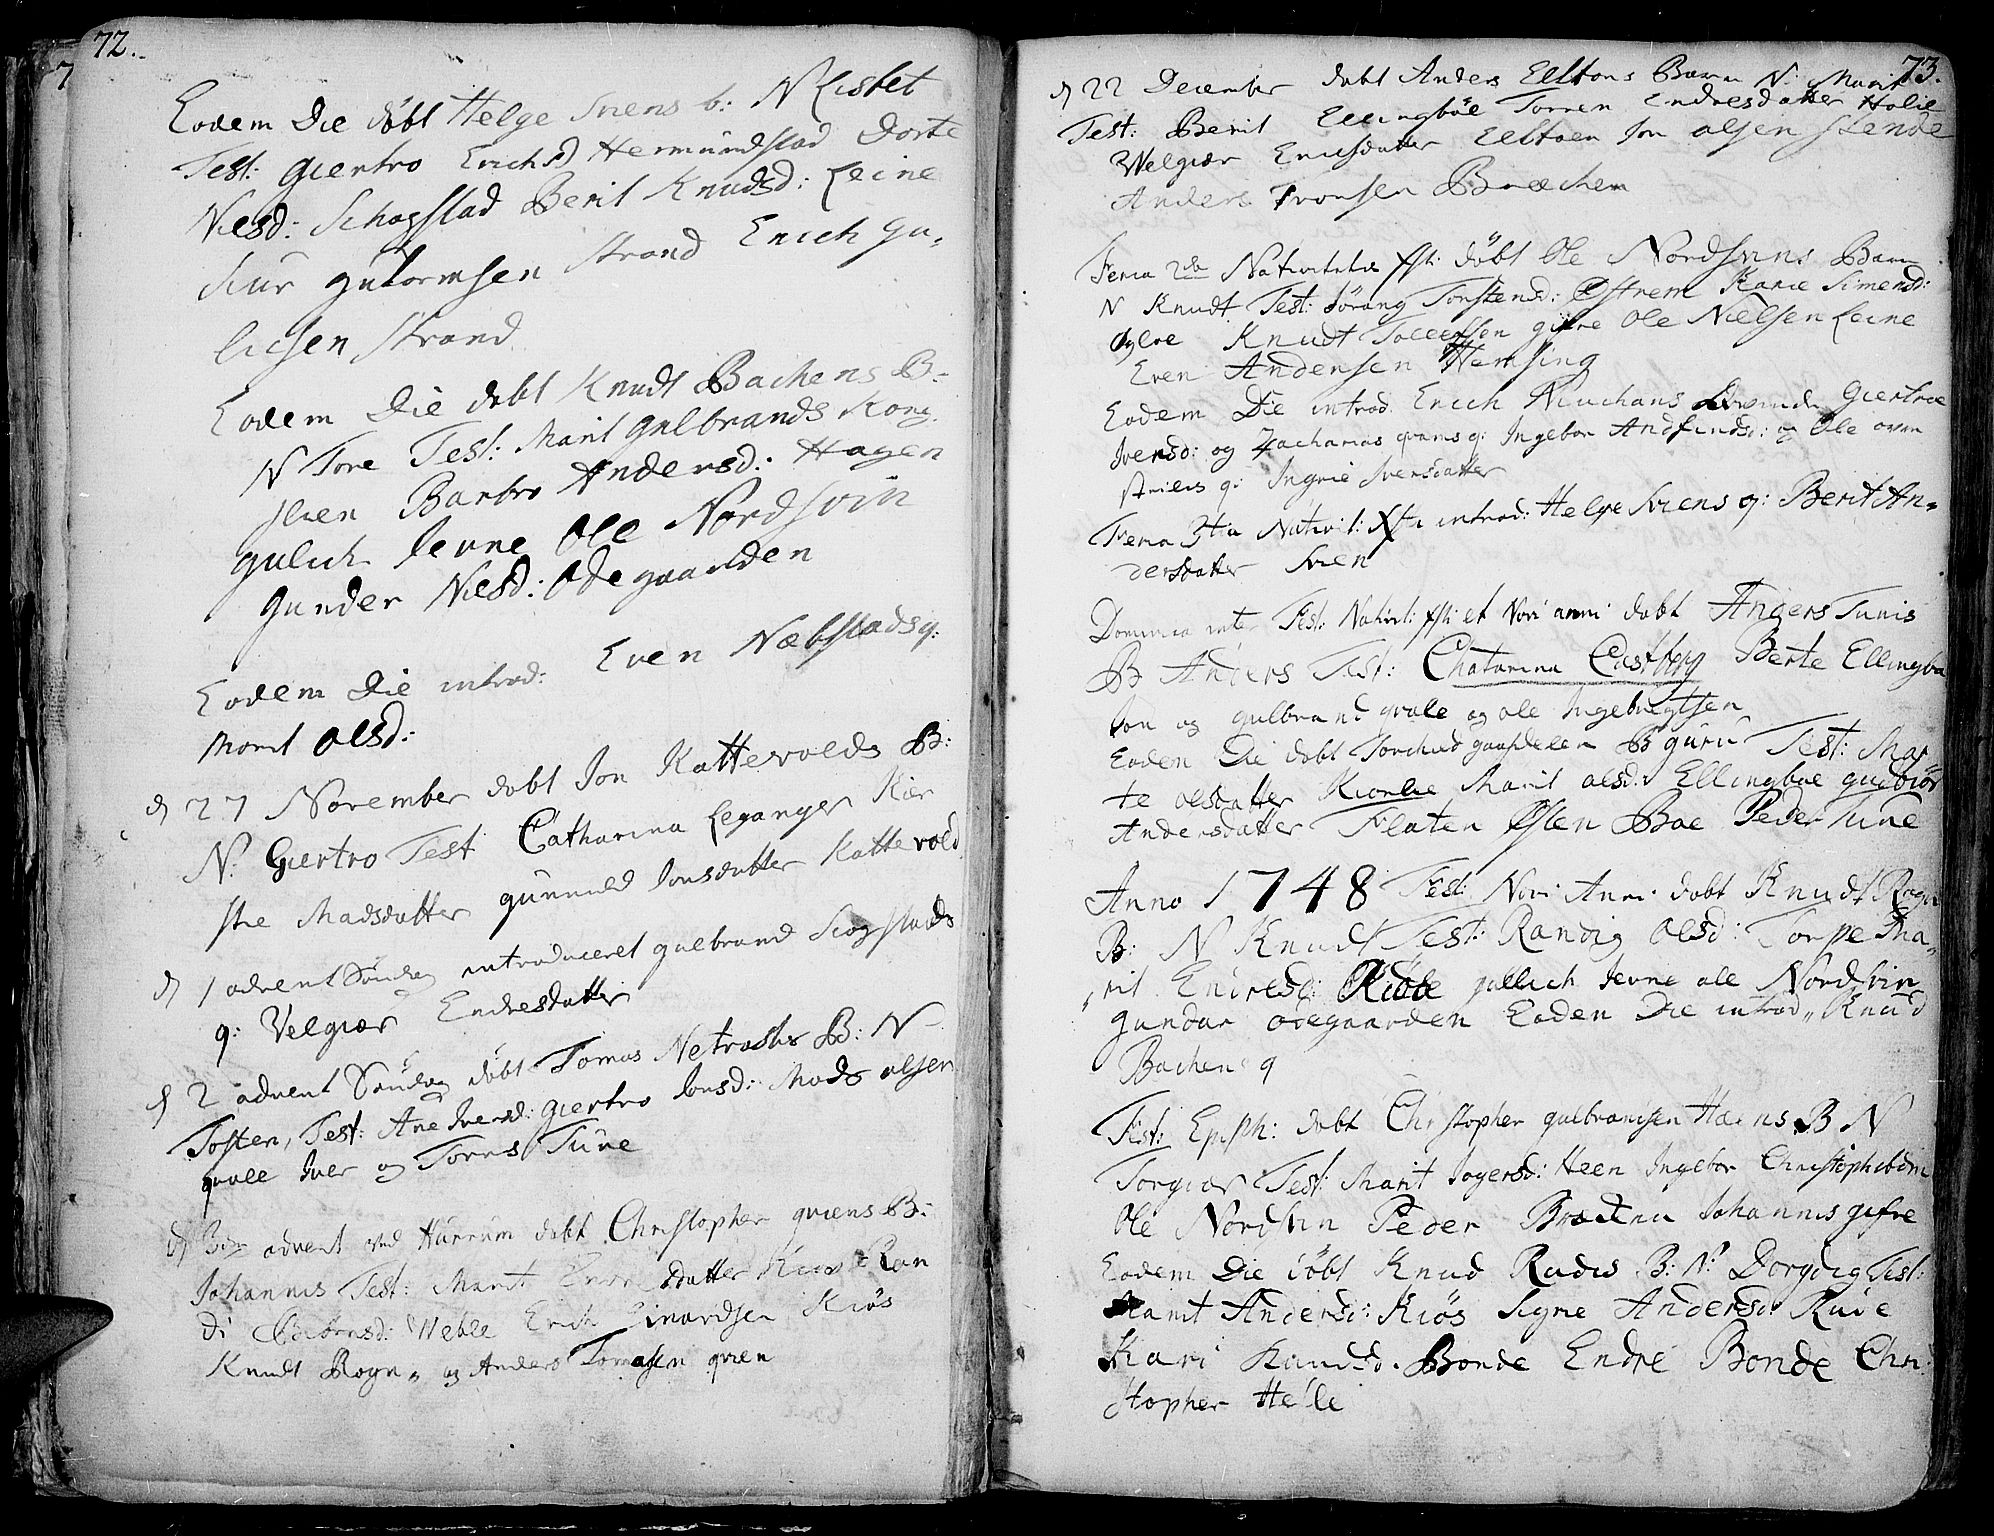 72.
7
Eodem Die döbt Helge Sviens b: N Lisbet
Test: Giertro Erichsd Hermundstad Dorte
Nielsd: Schogstad Berit Knudsd: Leine
Siur Gutormsen Strand Erich Gu,
lichsen Strand
Eodem Die døbt Knudt Bachens B:
N Tore Test: Marit Gulbrands Kong,
slien Barbro Andersd: Hagen
Gulich Jevne Ole Nordsvin
Gunder Nielsd: Ødegaarden
Eodem Die introd: Even Næbstads q:
Marit Olsd:
d 27 November døbt Jon Kattevolds B:
N: Giertro Test Catharina Leganger Kier
stie Madsdatter Gunnild Jonsdatter Kattevold
d 1 advent Søndag introduceret Gulbrand Sogstads
q: Velgiær Endresdatter
d 2 advent Søndag döbt Tomas Netrosts B: N
Tosten, Test: Ane Iversd: Giertro Jonsd: Mads Olsen
qvale Iver og Torris Tune
d 3die advent ved Hurrum döbt Christopher qviens B:
Johannis Test: Marit datter Kiøs Ran
di Biørnsd: Weble Erich Einardsen Kiøs
Knudt Rogn, og Anders Tomasen qvien
73.
d 22 December døbt Anders Eltons Barn N: Marit
Test: Berit Ellingbøe Torren Endresdatter Holie
Welgiær Erichsdatter Eltoen Jon Olsen Stende
Anders Tronsen Bræchen
Feria 2da Nativitatis Xsti döbt Ole Nordsvins Barn
N Knudt Test: Sörang Torstensd: Østrem Karie Simensd:
Øglre Knudt Tollefsen Gifre Ole Nielsen Leine
Even Andersen Hemsing
Eodem Die introd. Erich Niuchans qvinde Giertroe
Iversd: og Zacharias qvams q: Ingebor Andfindsd: og Ole oven
strieis q: Ingrie Iversdatter
Feria 3tia Nativit: Xsti introd: Helge Sviens q: Berit An,
dersdatter Svien
Dominica inter Fest: Nativit: Xsti et Novi anni døbt Anders Tunis
B Anders Test: Chatarina Castberg Berte Ellingbø
Jon og Gulbrand qvale og Ole Ingebrigtsen
Eodem Die døbt Torchild B Guru Test: Mar,
te Olsdatter Kiorlie Marit Olsd: Ellingbøe Gudbiør
Andersdatter Flaten Østen Bøe Peder Tune
Anno 1748 Fest: Novi Anni døbt Knudt Rogns
B: N Knudt Test: Randig Olsd: Torpe Ma,
,rit Endresd: Kiöbe Gullich Jevne Ole Nordsvin
Gundar Ødegaarden Eodem Die introd, Knud
Bachens q
Fest: Epiph: døbt Christopher Gulbrandsen Hæns B N
Torgiær Test: Marit Jogersd: Heen Ingebor Christophersdr
Ole Nordsvin Peder Brædena Johannis Gifre
Eodem Die döbt Knud Rudis B: N: Dorgdig Test:
Marit Andersd: Kiøs Signe Andersd: Rudie
Kari Knudsd. Bonde Endre Bonde Chri
stopher Helle